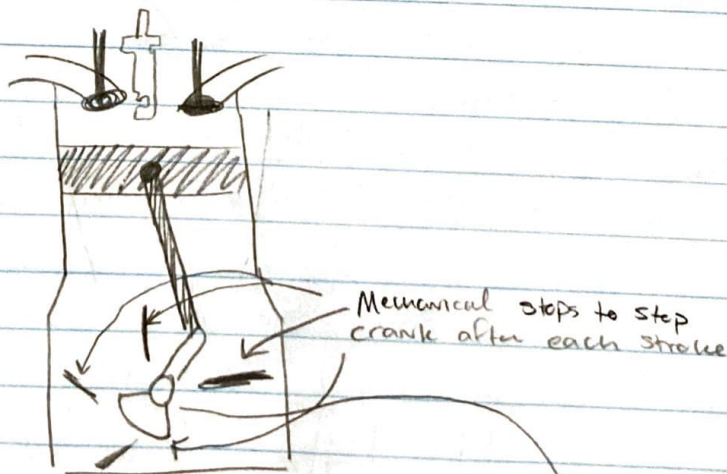 Mechanical stops to stop
crank after each stroke